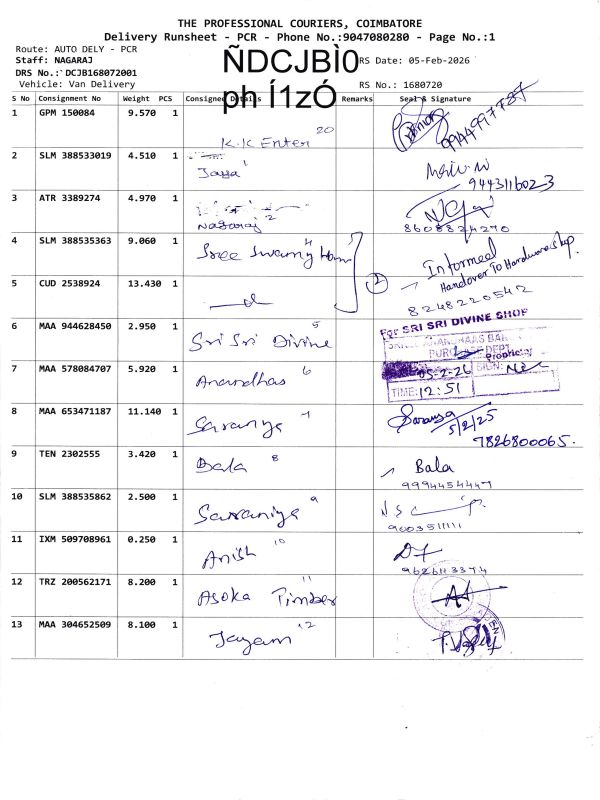 THE PROFESSIONAL COURIERS, COIMBATORE
Delivery Runsheet - PCR - Phone No.:9047080280 - Page No.:1
Route: AUTO DELY - PCR
Staff: NAGARAJ
DRS No.: DCJB168072001
Vehicle: Van Delivery
ÑDCJBÌ0
ph Í1zÓ
RS Date: 05-Feb-2026
RS No.: 1680720
S No Consignment No Weight PCS Consignee Details Remarks Seal & Signature
1 GPM 150084 9.570 1 K.K Enter 20 9944997787
2 SLM 388533019 4.510 1 Jaya 1 9443116023
3 ATR 3389274 4.970 1 Nagaraj 2 8608824270
4 SLM 388535363 9.060 1 Sree Swamy Hom 4 2 Informed
Handover To Hardware shop.
5 CUD 2538924 13.430 1 8248220542
6 MAA 944628450 2.950 1 Sri Sri Divine 5 For SRI SRI DIVINE SHOP
Proprietor
7 MAA 578084707 5.920 1 Anandhas 6 PURCHASE DEPT
05-2-26 SIGN:
TIME: 12:51
8 MAA 653471187 11.140 1 Saranya 7 Saranya
5/2/25
7826800065.
9 TEN 2302555 3.420 1 Bala 8 Bala
9994454447
10 SLM 388535862 2.500 1 Saraniya 9
9003511111
11 IXM 509708961 0.250 1 Anish 10
12 TRZ 200562171 8.200 1 Asoka Timber 11
13 MAA 304652509 8.100 1 Jayam 12